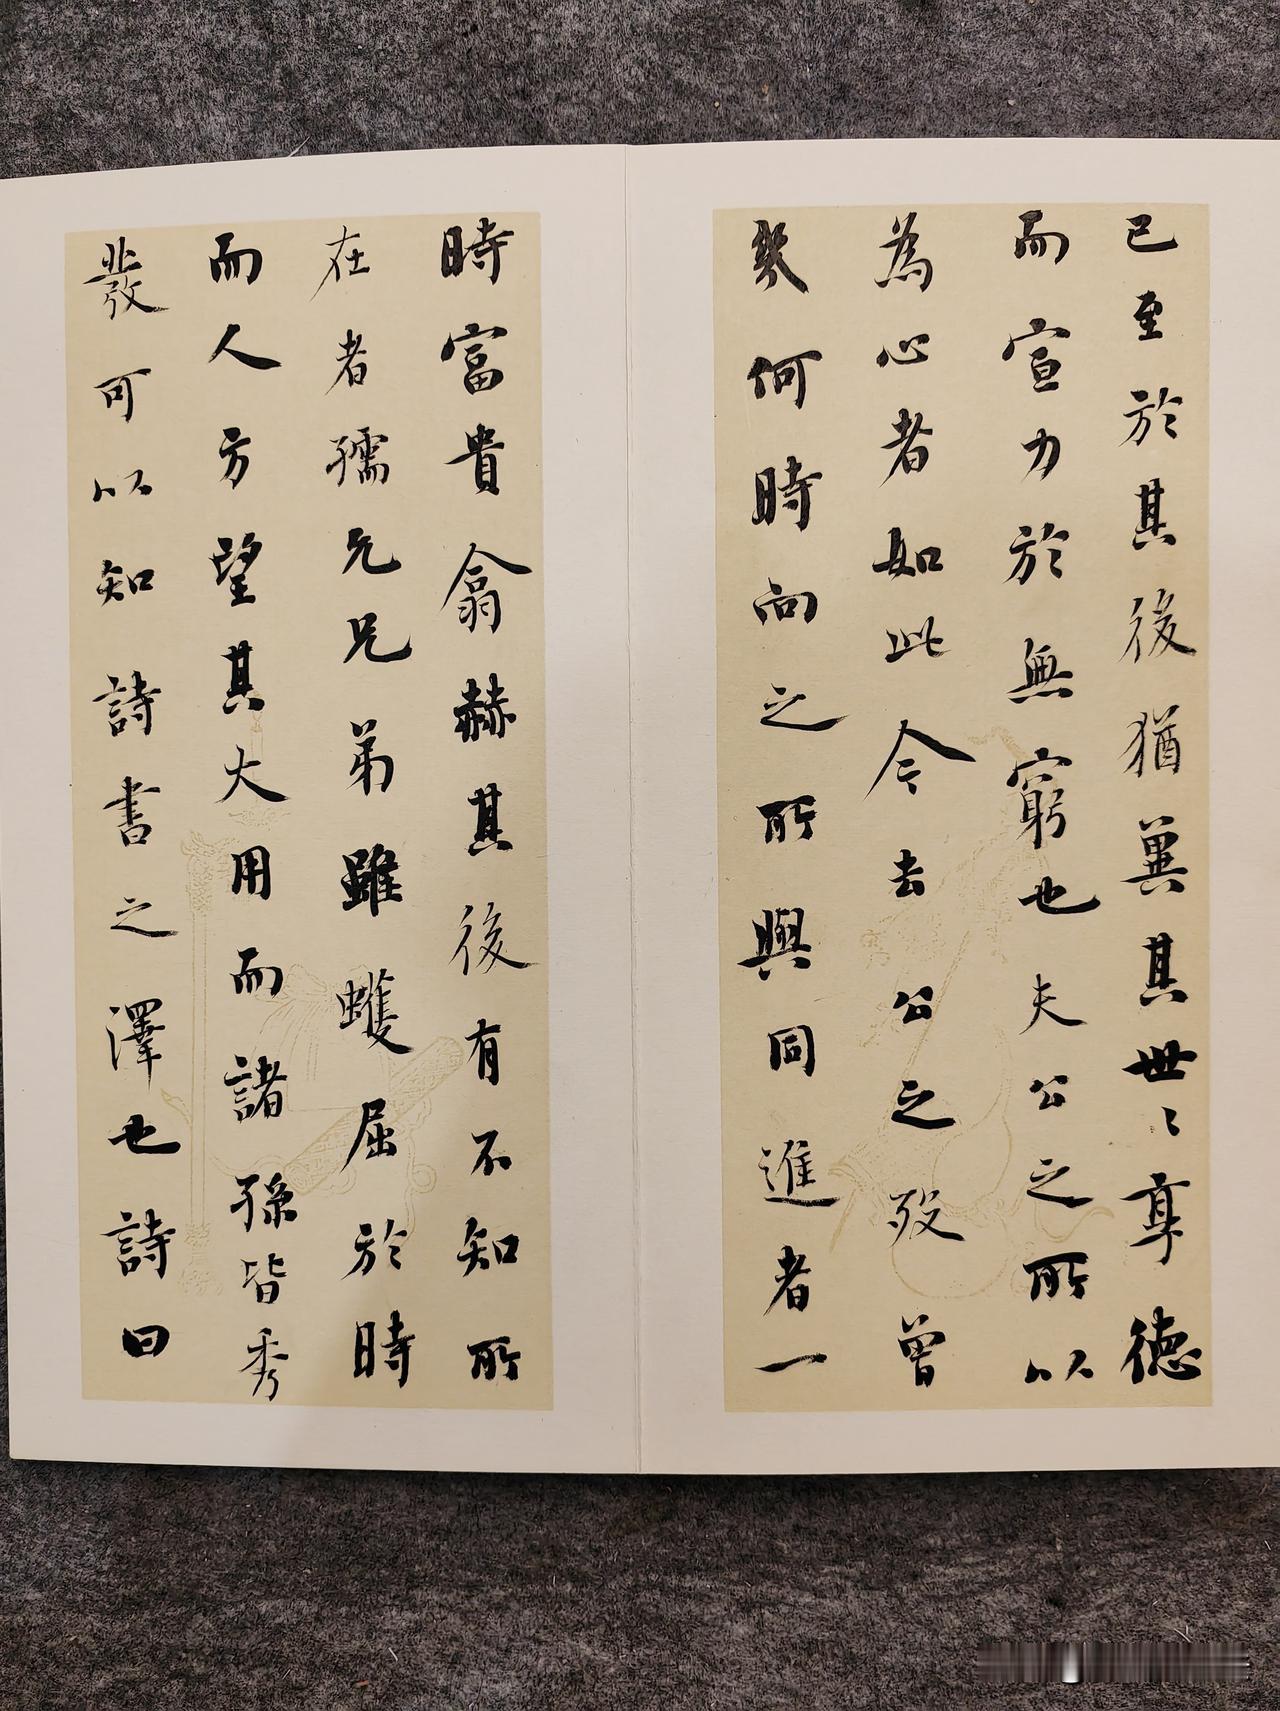 已至於其後猶冀其世〻享德
而宣力於無窮也夫公之所以
為心者如此今去公之歿曾
幾何時向之所與同進者一
時富貴翕赫其後有不知所
在者孺允兄弟雖蠖屈於時
而人方望其大用而諸孫皆秀
發可以知詩書之澤也詩曰